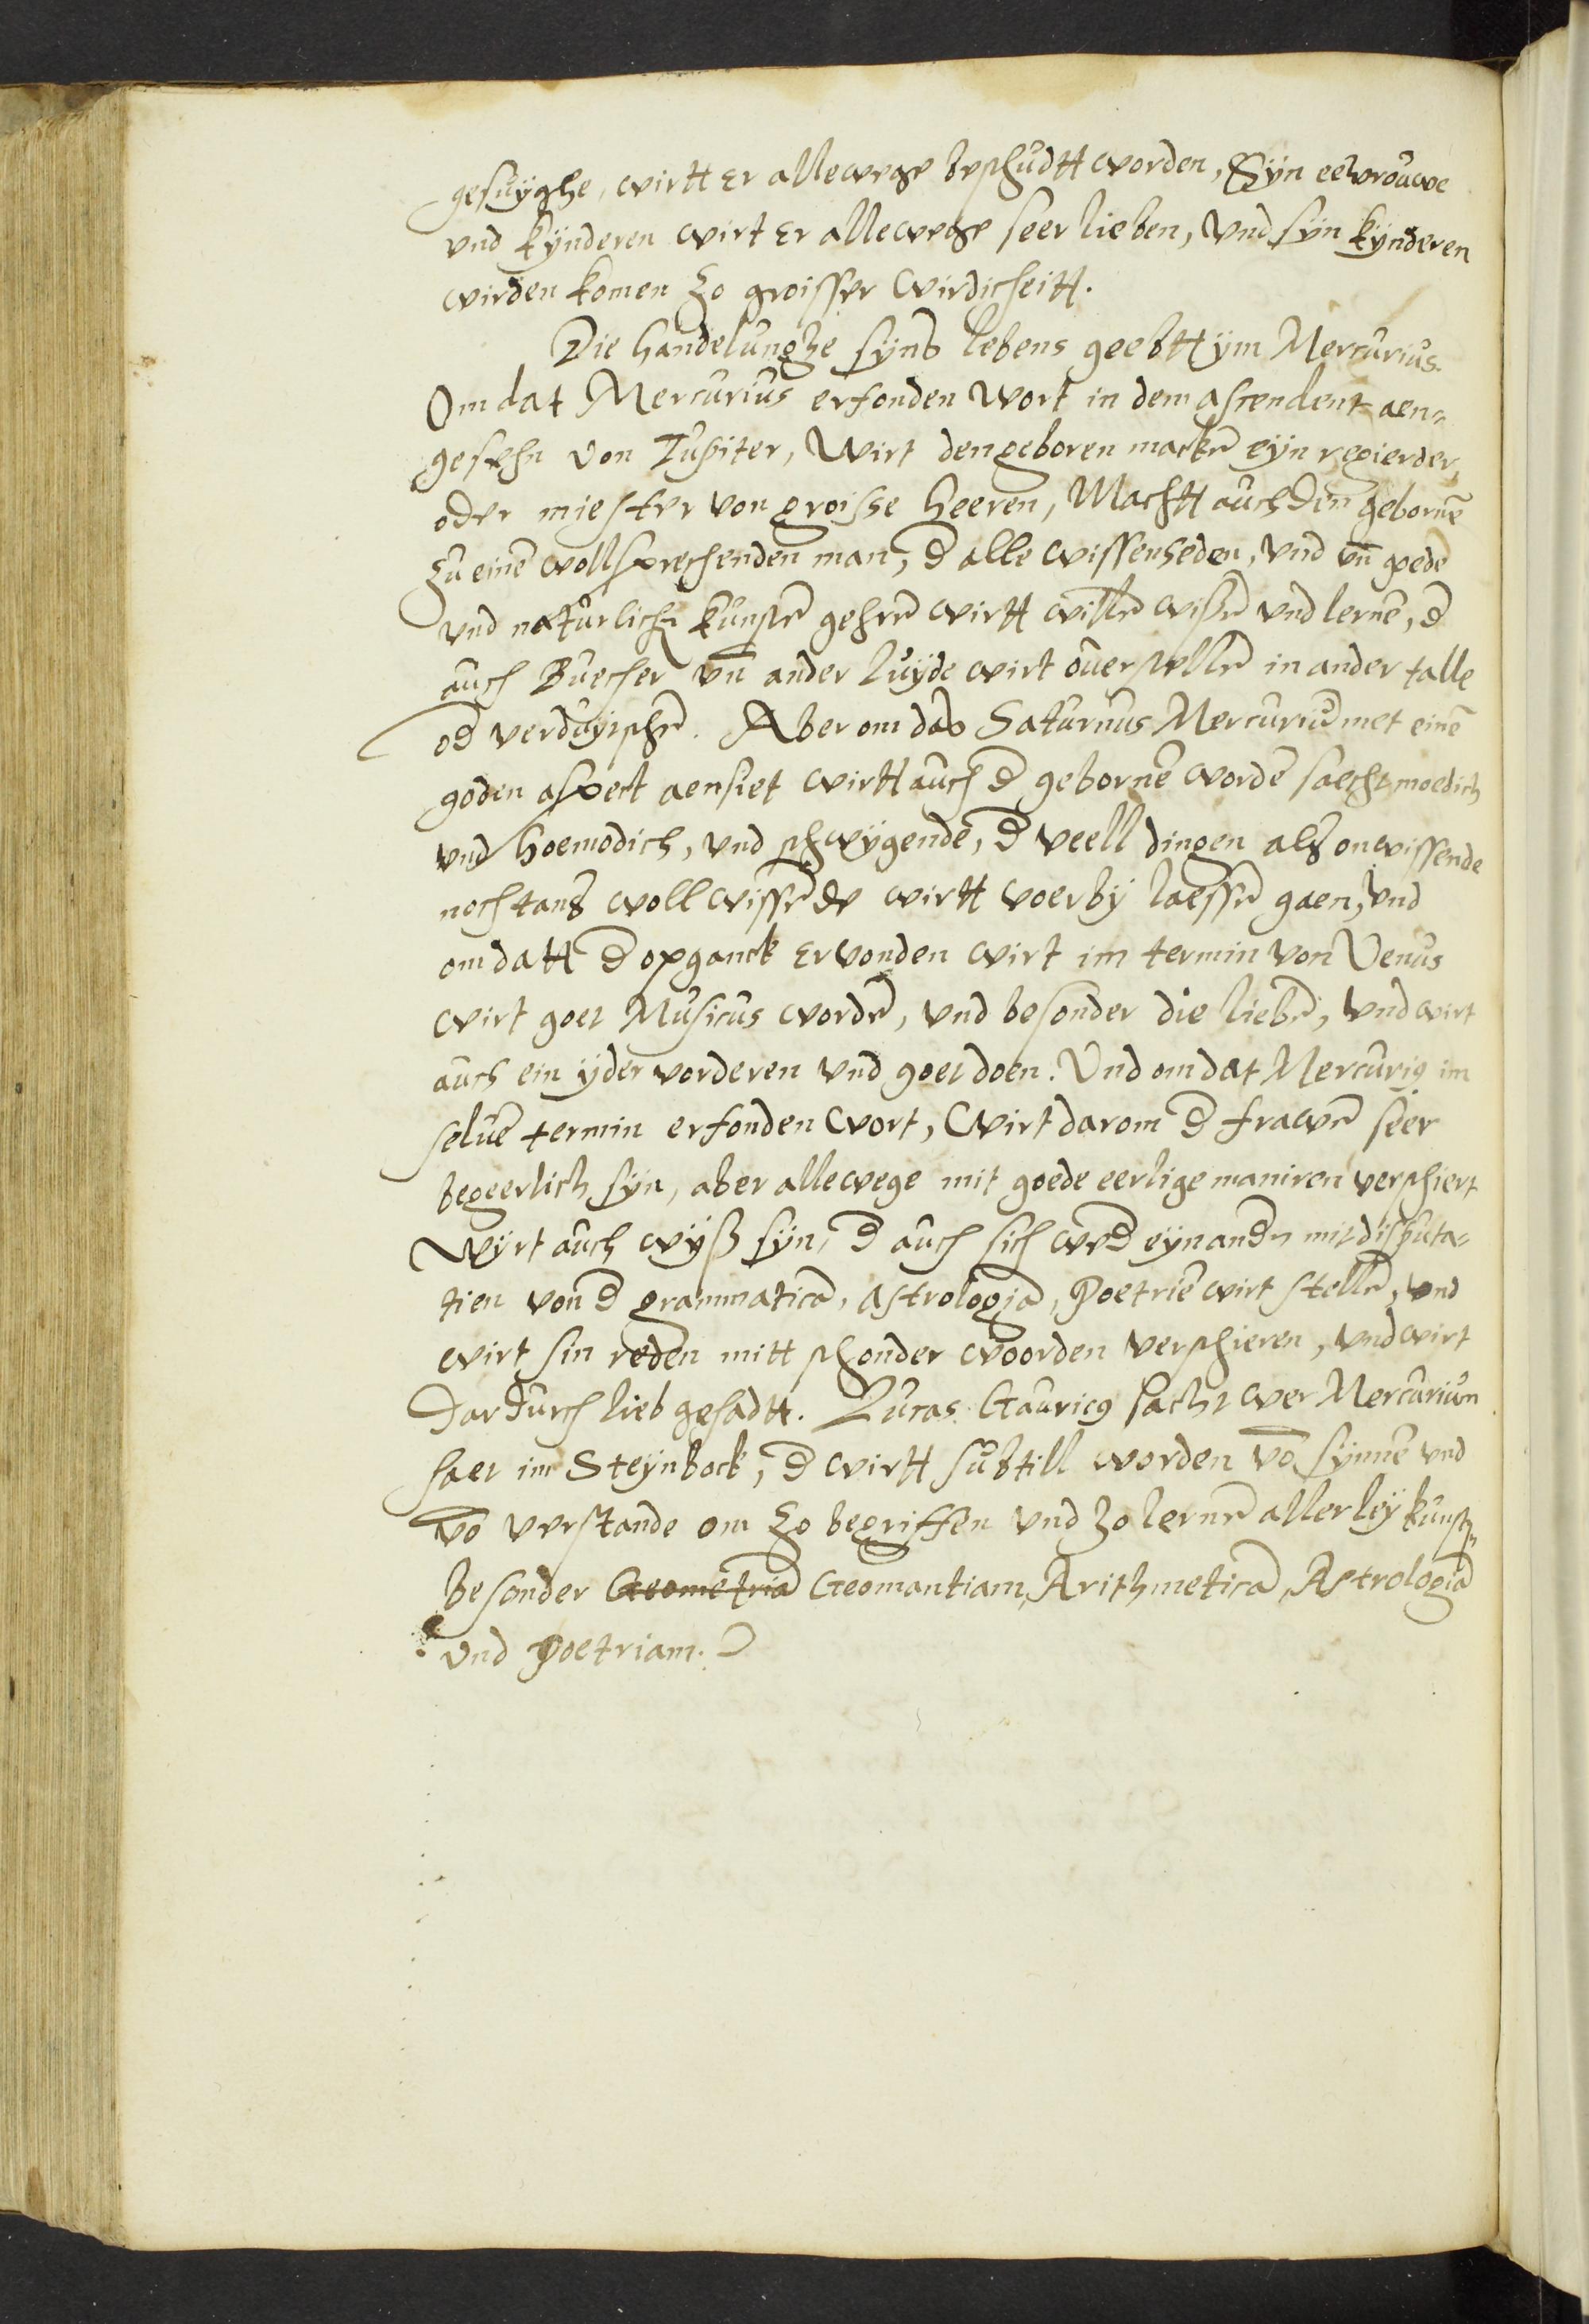 gesuÿghe, wirtt er allewege beschudtt worden, Syn eevrouwe
vnd kÿnderen wirt er allewege seer lieben, vnd syn kÿnderen
wirden komen zo groisser wirdicheitt.
Die handelunghe syns lebens geebtt ÿm Mercurius.
Om dat Mercurius erfonden wort in dem ascendent aen-
gesehn von Iupiter, Wirt den geboren macke eÿn regierder,
oder miester von groisse heeren, Machtt auch den gebornē
zu einē wollsprechenden man, d alle wissenheden, vnd vn̄ goede
vnd naturliche kunstē gehrē wirtt willē wissē vnd lernē, d
auch Buecher vn̄ ander luÿde wirt ouerstellē in ander talle
od verduÿtschē. Aber om das Saturnus Mercuriū met einē
goden aspect aensiet wirtt auch d gebornē wordē sachtmoedich
vnd hoemodich, vnd schwÿgende, d veell dingen als onwissende
nochtans woll wissēde wirtt voerbÿ laessē gaen, vnd
om datt d opganck ervonden wirt im termin von Venus
wirt goet Musicus wordē, vnd besonder die liebē, vnd wirt
auch ein ÿder vorderen vnd goet doen. Vnd om dat Mercuri9 im
seluē termin erfonden wort, Wirt darom d frawē seer
begeerlich sÿn, aber allewege mit goede eerlige maniren verschiert
Wÿrt auch wÿß sÿn, d auch sich wed eÿn andn mit disputa-
tien von d grammatica, astrologia, Poetriē wirt stellē, vnd
wirt sin reden mitt schonder woorden verschieren, vnd wirt
dardurch lieb gehadtt. Lucas Gauric9 sacht wer Mercurium
haet im Steÿnbock, d wirtt subtill worden vō sÿnnē vnd
vō verstande om zo begriffen vnd zo lernē allerleÿ kunstē
besonder Geometria Geomantiam, Arithmeticā, Astrologiā
vnd Poetriam.